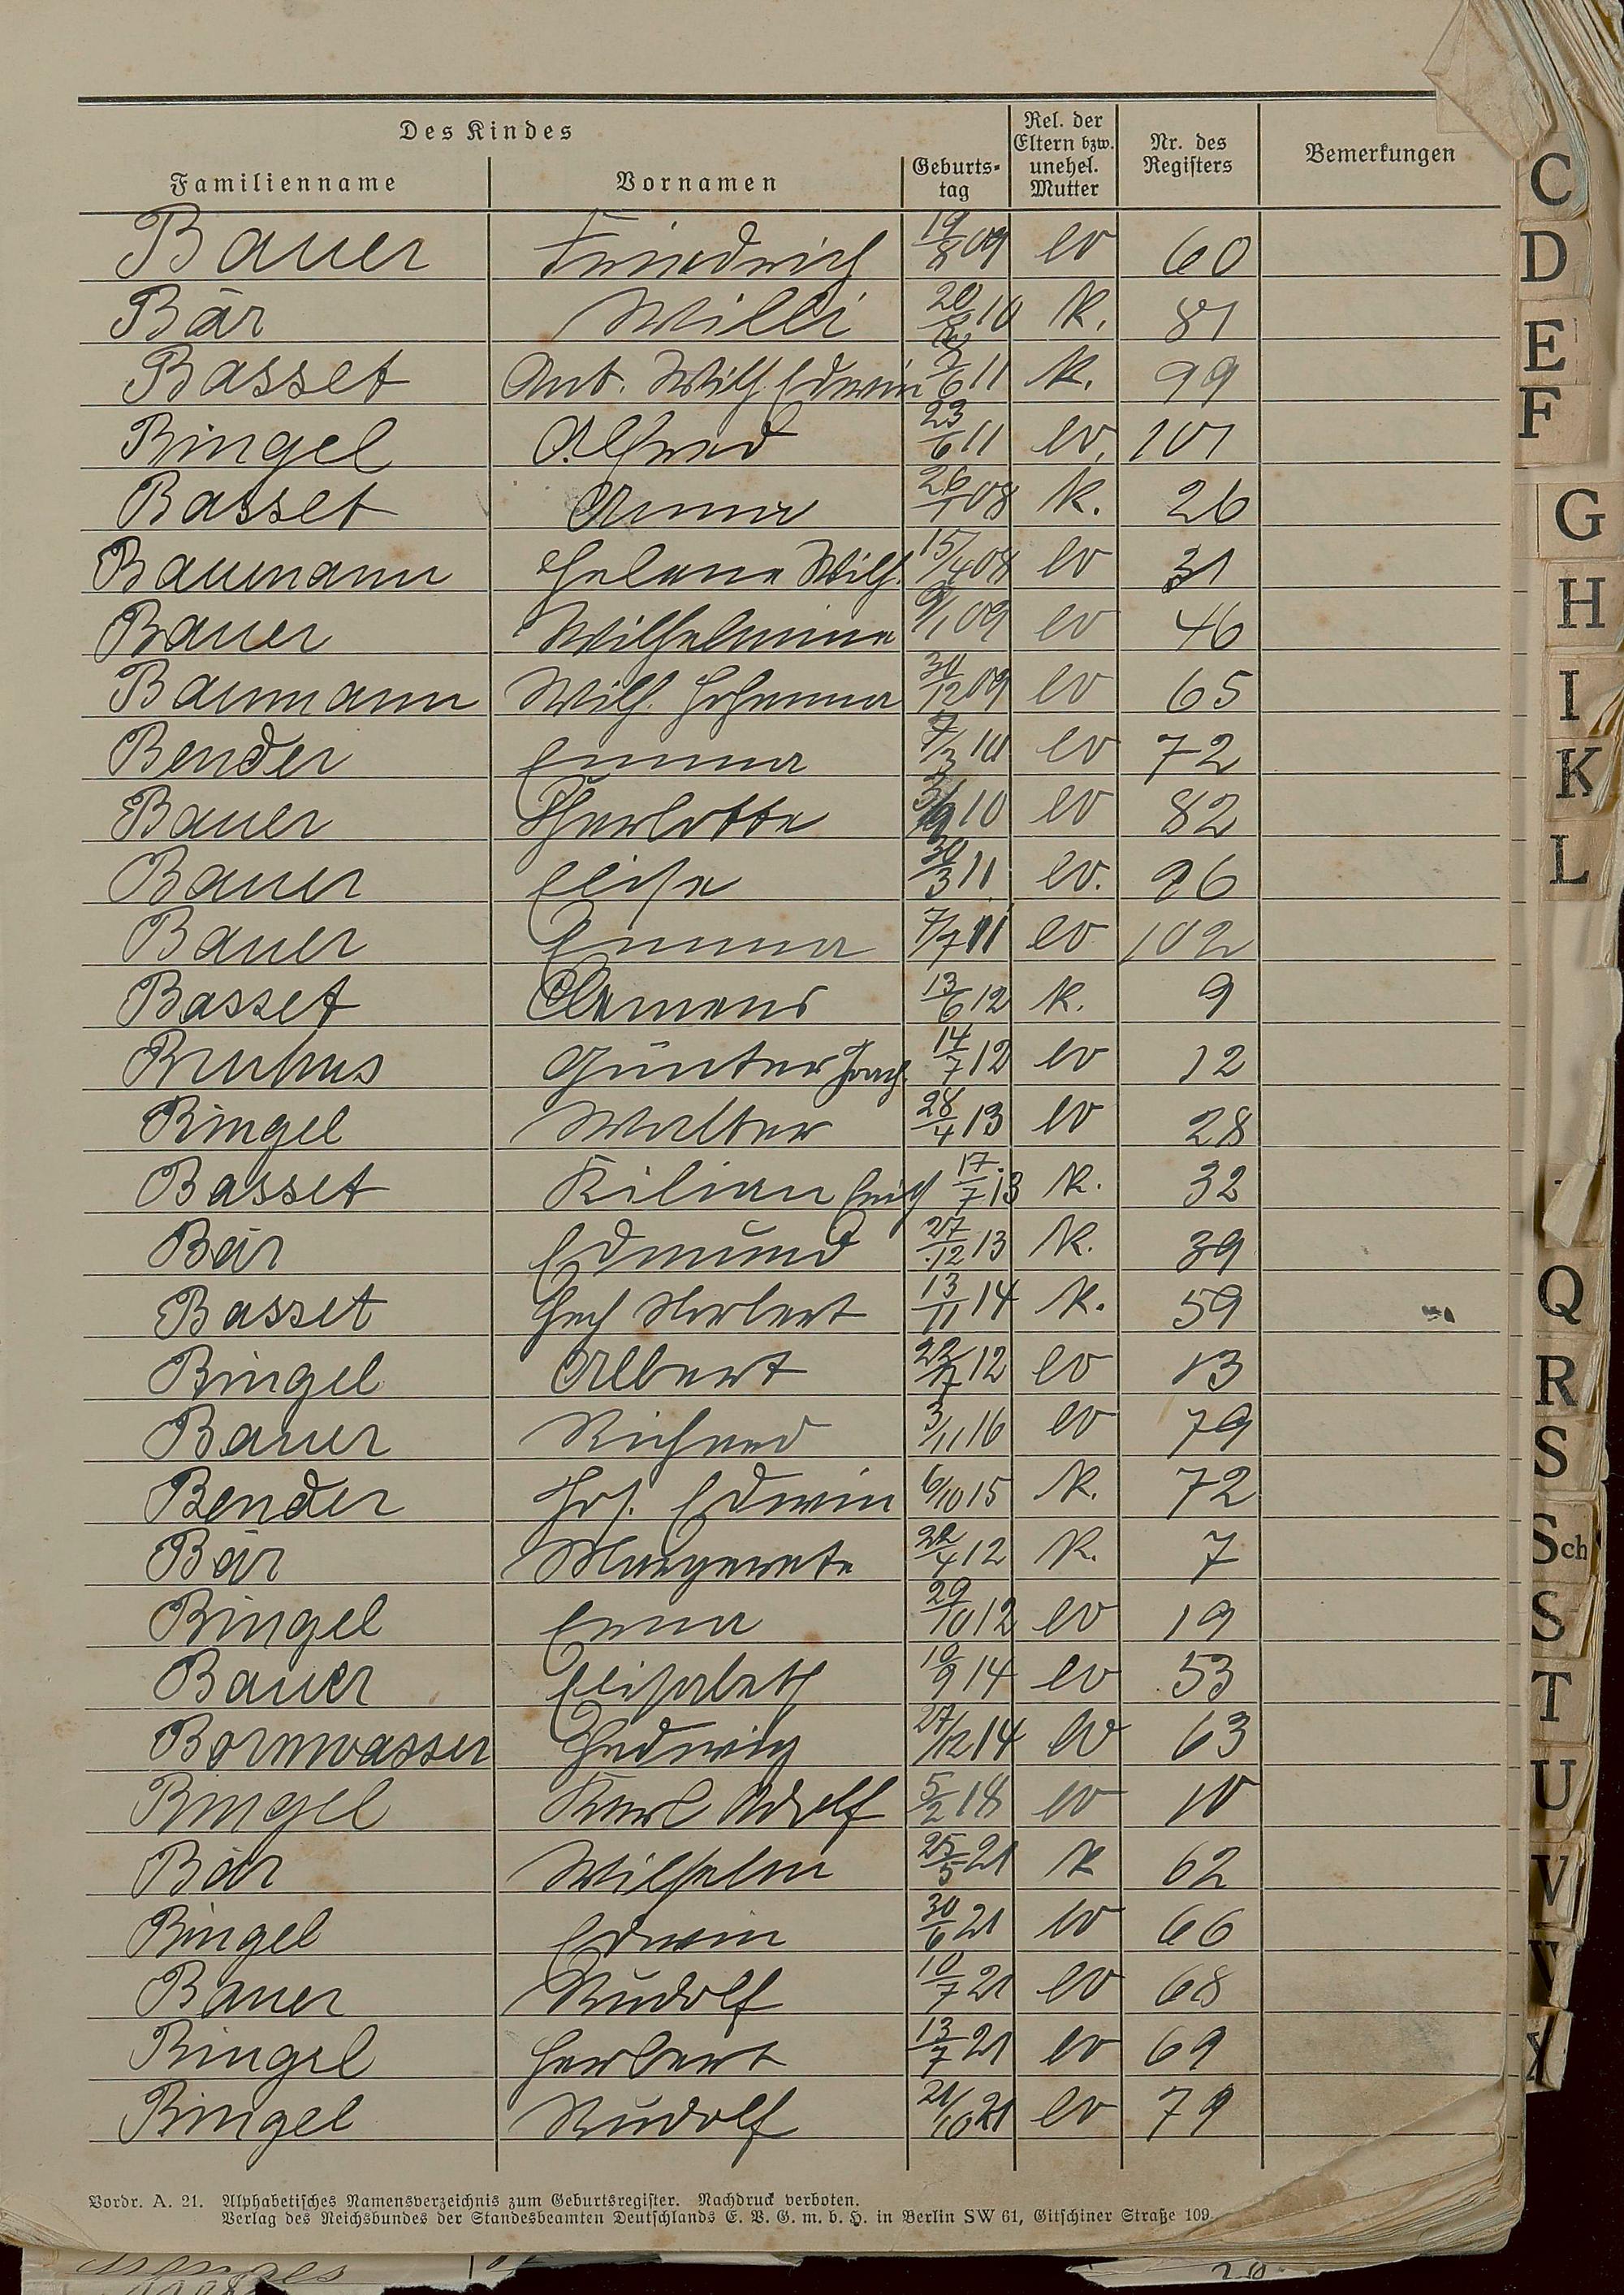 Des Kindes
Familienname Vornamen Geburts-tag Rel. der Eltern bzw. unehel. Mutter Nr. des Registers Bemerkungen
Bauer Friedrich 19/8 09 ev 60
Bär Willi 20/8 10 k. 81
Basset Ant. Wilh. Edwin /6 11 k. 99
Bingel Alfred 23/6 11 ev. 101
Basset Anna 26/1 08 k. 26
Baumann Helene Wilh. 15/4 08 ev 31
Bauer Wilhelmine 9/1 09 ev 46
Baumann Wilh. Johanna 30/12 09 ev 65
Bender Emma /3 10 ev 72
Bauer Charlotte /9 10 ev 82
Bauer Elise 30/3 11 ev. 96
Bauer Emma 7/7 11 ev 102
Basset Clemens 13/6 12 k. 9
Bruhns Günter Joach. 14/7 12 ev 12
Bingel Walter 28/4 13 ev 28
Basset Kilian Erich 17./7 13 k. 32
Bär Edmund 27/12 13 k. 39
Basset Herbert 13/11 14 k. 59
Bingel Albert 22/7 12 ev 13
Bauer Richard 3/11 16 ev 79
Bender Jos. Edwin 6/10 15 k. 72
Bär Margarete 22/4 12 k. 7
Bingel Erna 29/10 12 ev 19
Bauer Elisabeth 10/9 14 ev 53
Bornwasser Hedwig 27/12 14 ev 63
Bingel Karl Adolf 5/2 18 ev 10
Bär Wilhelm 25/5 21 k 62
Bingel Edwin 30/6 21 ev 66
Bauer Rudolf 10/7 21 ev 68
Bingel Herbert 13/7 21 ev 69
Bingel Rudolf 21/10 21 ev 79
Vordr. A. 21. Alphabetisches Namensverzeichnis zum Geburtsregister. Nachdruck verboten.
Verlag des Reichsbundes der Standesbeamten Deutschlands E. V. G. m. b. H. in Berlin SW 61, Gitschiner Straße 109.
C
D
E
F
G
H
I
K
L
Q
R
S
Sch
S
T
U
V